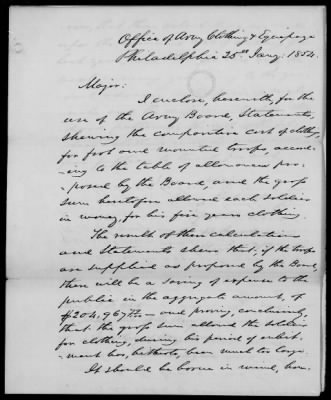 Office of Army Clothing & Equipage
Philadelphia 25th Jany. 1854.
Major:
I enclose, herewith, for the
use of the Army Board, Statements,
shewing the comparative cost of clothing,
for foot and mounted troops accor-
ding to the table of allowances pro-
-posed by the Board, and the gross
sum heretofore allowed each soldier
in money, for his five years clothing.
The result of these calculations
and Statements shews that, if the troops
are supplied as proposed by the Board,
there will be a saving of expense to the
public in the aggregate amount, of
$204,967 — and proving, conclusively,
that the gross sum allowed the soldier
for clothing, during his period of enlist-
-ment has, hitherto, been much too large.
It should be borne in mind, how-